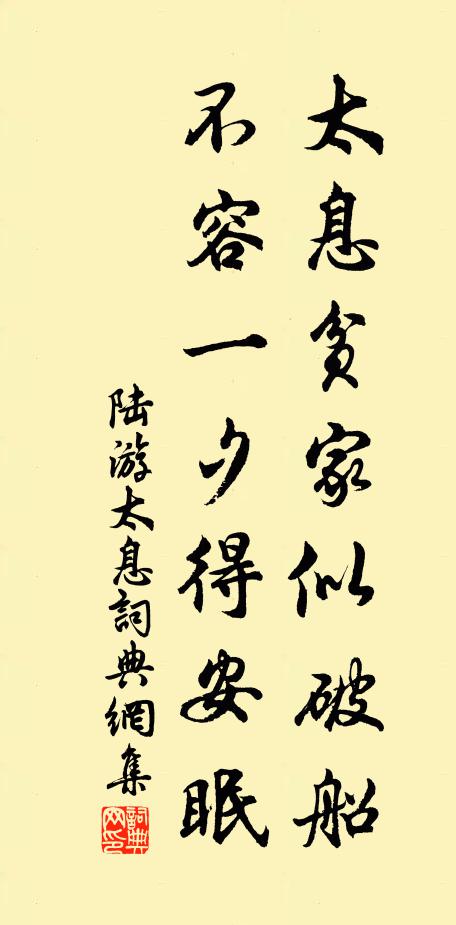 太息贫家似破船
不容一夕得安眠
陆游太息詞典網集
詞典網印